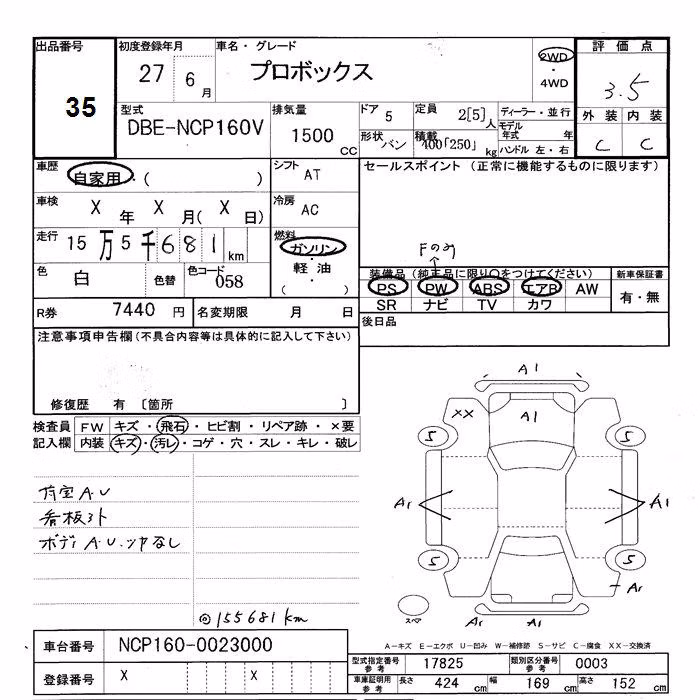 出品番号
35
初度登録年月
27 6月
車名・グレード
プロボックス
2WD
・
4WD
評価点
3.5
外装 内装
C C
型式
DBE-NCP160V
排気量
1500 CC
ドア 5
定員 2[5]人
ディーラー・並行
モデル年式 年
ハンドル 左・右
形状 バン
積載 400「250」kg
車歴
自家用・( )
シフト AT
セールスポイント (正常に機能するものに限ります)
車検 X 年 X 月( X 日)
冷房 AC
走行 15万5千681km
燃料
ガソリン
・
軽油
・
( )
色 白 色替 色コード 058
Fのみ
装備品(純正品に限り○をつけてください)
PS PW ABS エアB AW
SR ナビ TV カワ
新車保証書
有・無
R券 7440 円 名変期限 月 日
後日品
注意事項申告欄(不具合内容等は具体的に記入して下さい)
修復歴 有〔箇所 〕
検査員記入欄
FW キズ・飛石・ヒビ割・リペア跡・×要
内装 キズ・汚レ・コゲ・穴・スレ・キレ・破レ
荷室A・U
看板外
ボディA・U、ツヤなし
@155681km
A1
XX A1
S S
A1 A1
S S
A1
スペア A1
A-キズ E-エクボ U-凹み W-補修跡 S-サビ C-腐食 XX-交換済
車台番号 NCP160-0023000
登録番号 X X
型式指定番号 参考 17825 類別区分番号 参考 0003
車庫証明用 参考 長さ 424cm 幅 169cm 高さ 152cm